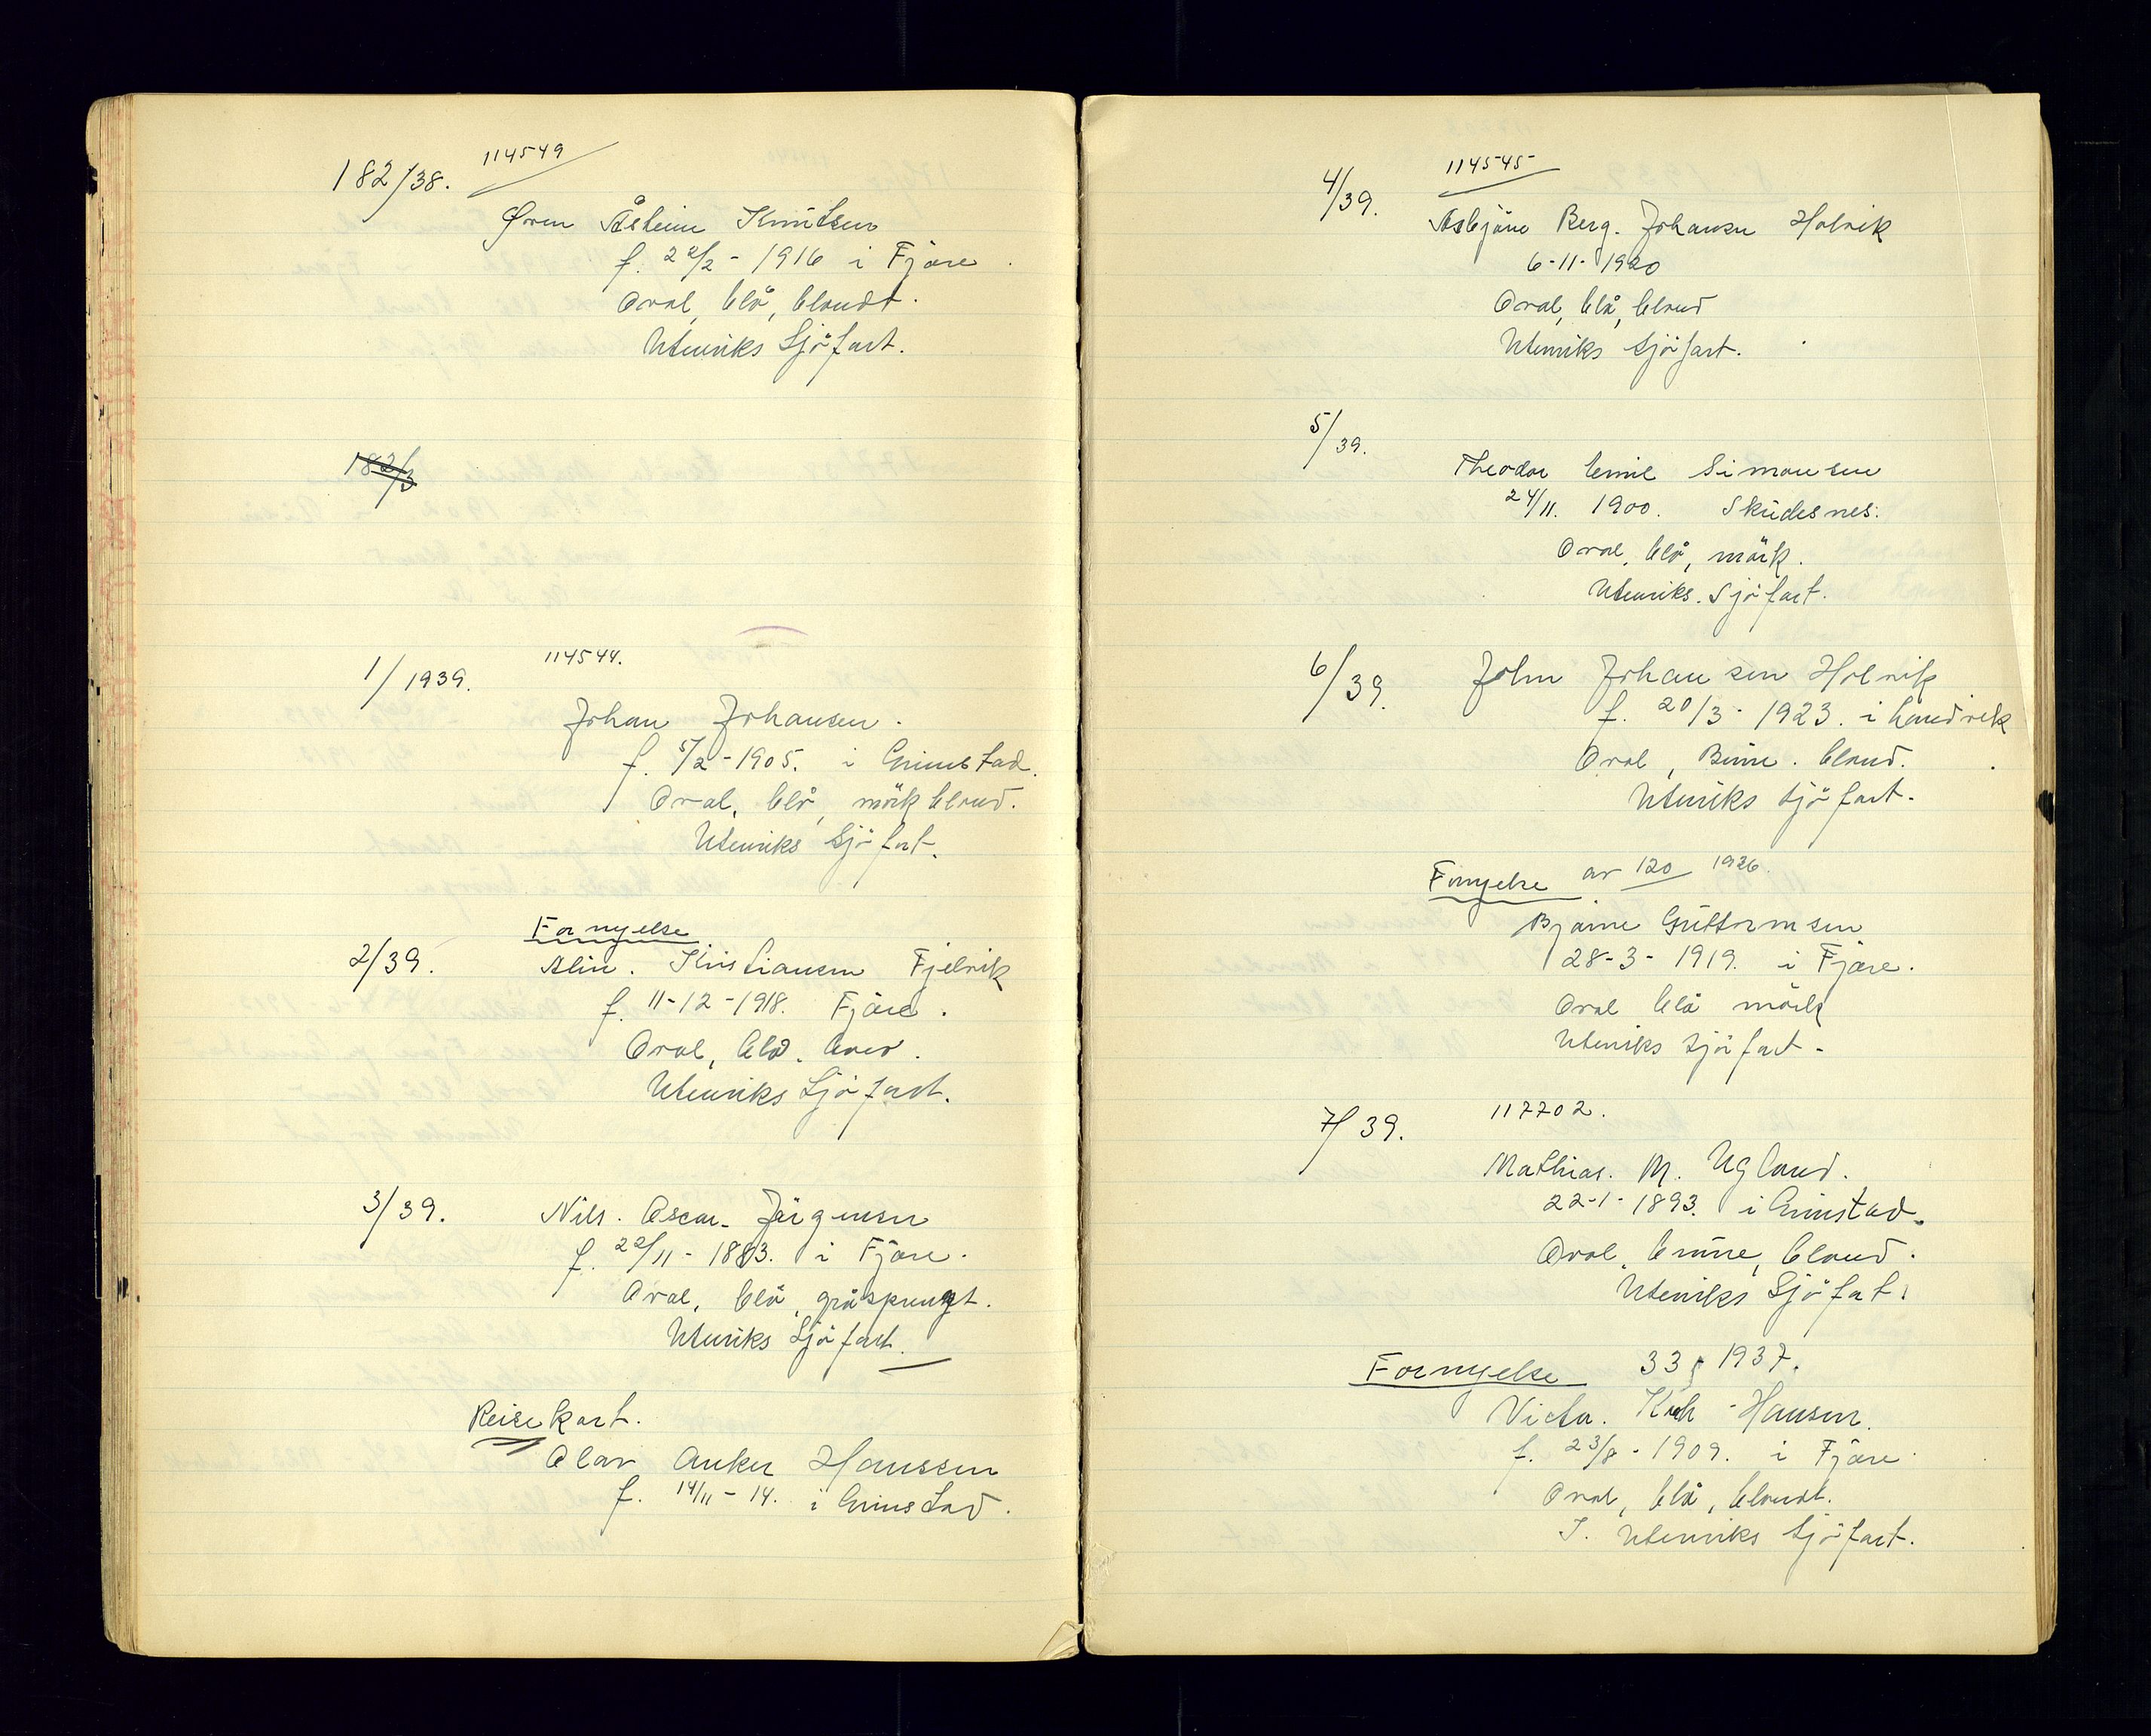 182/38. 114549
Øren Åsheim Knutsen
f. 22/2 - 1916 i Fjære
Oval, blå, blondt.
Utenriks Sjöfart.
182/3
1/1939. 114544.
Johan Johansen.
f. 5/2 - 1905. i Grimstad.
Oval, blå, mörk blond.
Utenriks Sjöfart.
Fornyelse
2/39. Alin. Kristiansen Fjelvik
f. 11-12-1918. Fjære.
Oval, blå.
Utenriks Sjöfart.
3/39. Nils. Oscar Jörgensen
f. 22/11 - 1883. i Fjære.
Oval, blå, gråsprengt.
Utenriks Sjöfart.
Reisekort.
Olav Anker Hanssen
f. 14/11 - 14. i Grimstad.
4/39. 114545
Asbjörn Berg. Johansen Holvik
6-11-1920
Oval, blå, blond
Utenriks Sjöfart.
5/39.
Theodor Emil Simonsen
24/11. 1900. Skudesnes.
Oval, blå, mörk.
Utenriks. Sjöfart.
6/39. John Johansen Holvik
f. 20/3 - 1923. i Landvik
Oval, Brune. blond.
Utenriks Sjöfart.
Fornyelse av 120 1936.
Bjarne Guttormsen
28-3-1919. i Fjære.
Oval blå mörk
Utenriks Sjöfart -
7/39. 117702.
Mathias. M. Ugland.
22-1-1893. i Grimstad.
Oval, brune, blond.
Utenriks Sjöfart.
Fornyelse 33/1937.
Victor. Hansen.
f. 23/8 - 1909. i Fjære
Oval, blå, blondt.
I. Utenriks Sjöfart.